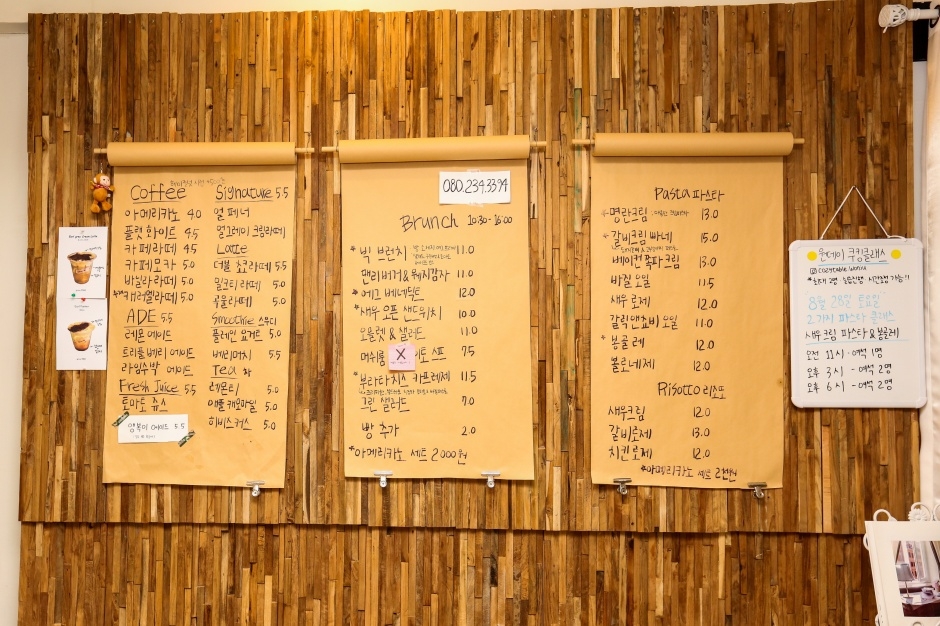 Coffee
아메리카노 4.0
플랫 화이트 4.5
카페라떼 4.5
카페모카 5.0
바닐라라떼 5.0
캐러멜라떼 5.0
ADE 5.5
레몬 에이드
트리플베리 에이드
라임수박 에이드
Fresh Juice 5.5
토마토 쥬스
행복이 에이드 5.5
Signature 5.5
얼 페너
얼그레이 크림라떼
Latte
더블 초코라떼 5.5
밀크티 라떼 5.0
곡물라떼 5.0
Smoothie 스무디
플레인 요거트 5.0
베리머치 5.5
Tea 차
레몬티 5.0
애플캐모마일 5.0
히비스커스 5.0
080.234.3394
Brunch 10:30-16:00
*빅 브런치 11.0
맨리버거&웨지감자 11.0
*에그 베네딕트 12.0
*새우 오픈 샌드위치 10.0
오믈렛 & 샐러드 11.0
머쉬룸 X 스프 7.5
*부라타치즈 카프레제 11.5
그린 샐러드 7.0
빵 추가 2.0
*아메리카노 세트 2000원
Pasta 파스타
*명란크림 13.0
*갈비크림 빠네 15.0
베이컨 쪽파 크림 13.0
바질 오일 11.5
새우 로제 12.0
갈릭앤쵸비 오일 11.0
*봉골레 12.0
볼로네제 12.0
Risotto 리조또
새우크림 12.0
갈비로제 13.0
치킨로제 12.0
*아메리카노 세트 2천원
원데이 쿠킹클래스
8월 28일 토요일
2가지 파스타 클래스
새우 크림 파스타 & 봉골레
오전 11시 - 여석 1명
오후 3시 - 여석 2명
오후 6시 - 여석 2명